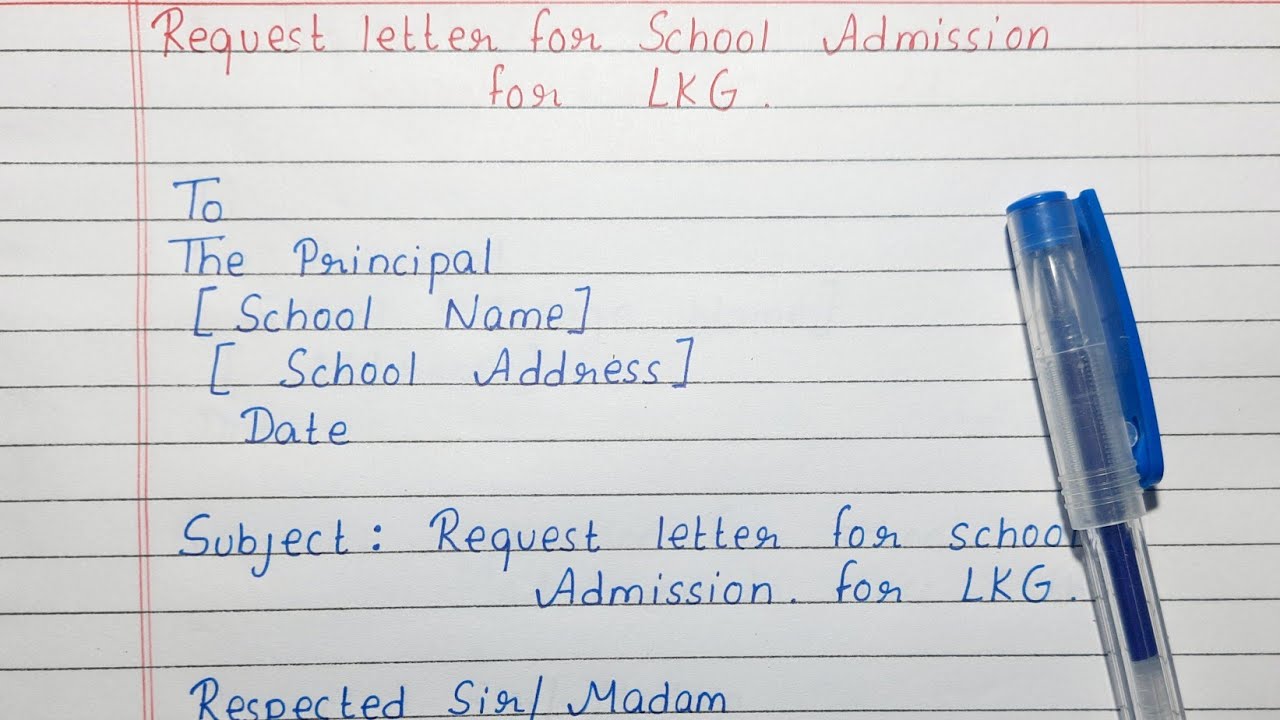 Request letter for School Admission
for LKG.
To
The Principal
[School Name]
[School Address]
Date
Subject: Request letter for school
Admission. for LKG.
Respected Sir/Madam